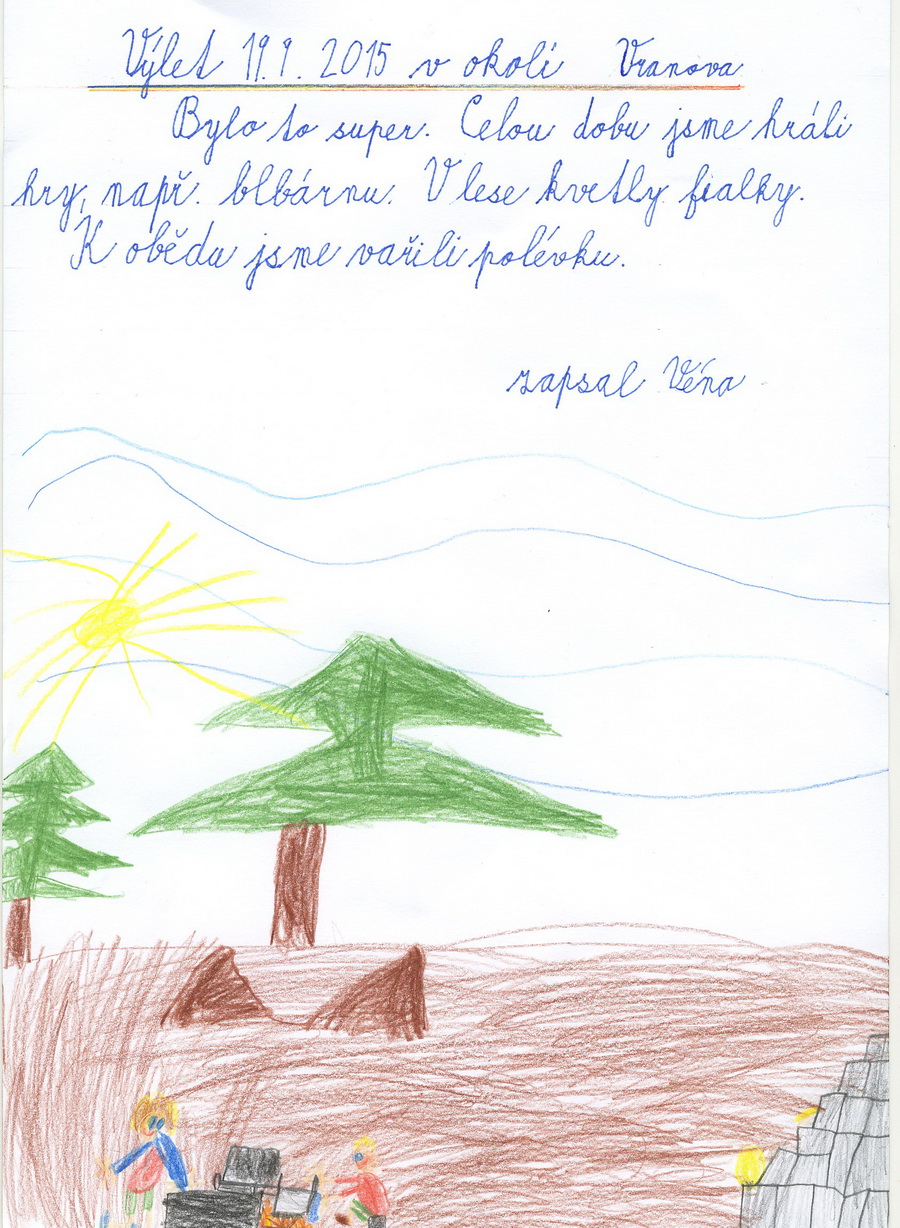 Výlet 19.9. 2015 v okolí Vranova
Bylo to super. Celou dobu jsme hráli
hry, např. blbárnu. V lese kvetly fialky.
K obědu jsme vařili polévku.
zapsal Véna